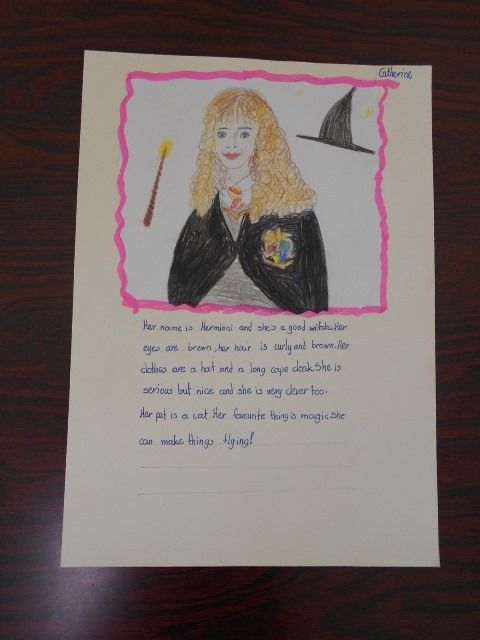 Catherine
Her name is Hermioni and she's a good witch. Her
eyes are brown, her hair is curly and brown. Her
clothes are a hat and a long cape cloak. She is
serious but nice and she is very clever too.
Her pet is a cat. Her favourite thing is magic. She
can make things flying!